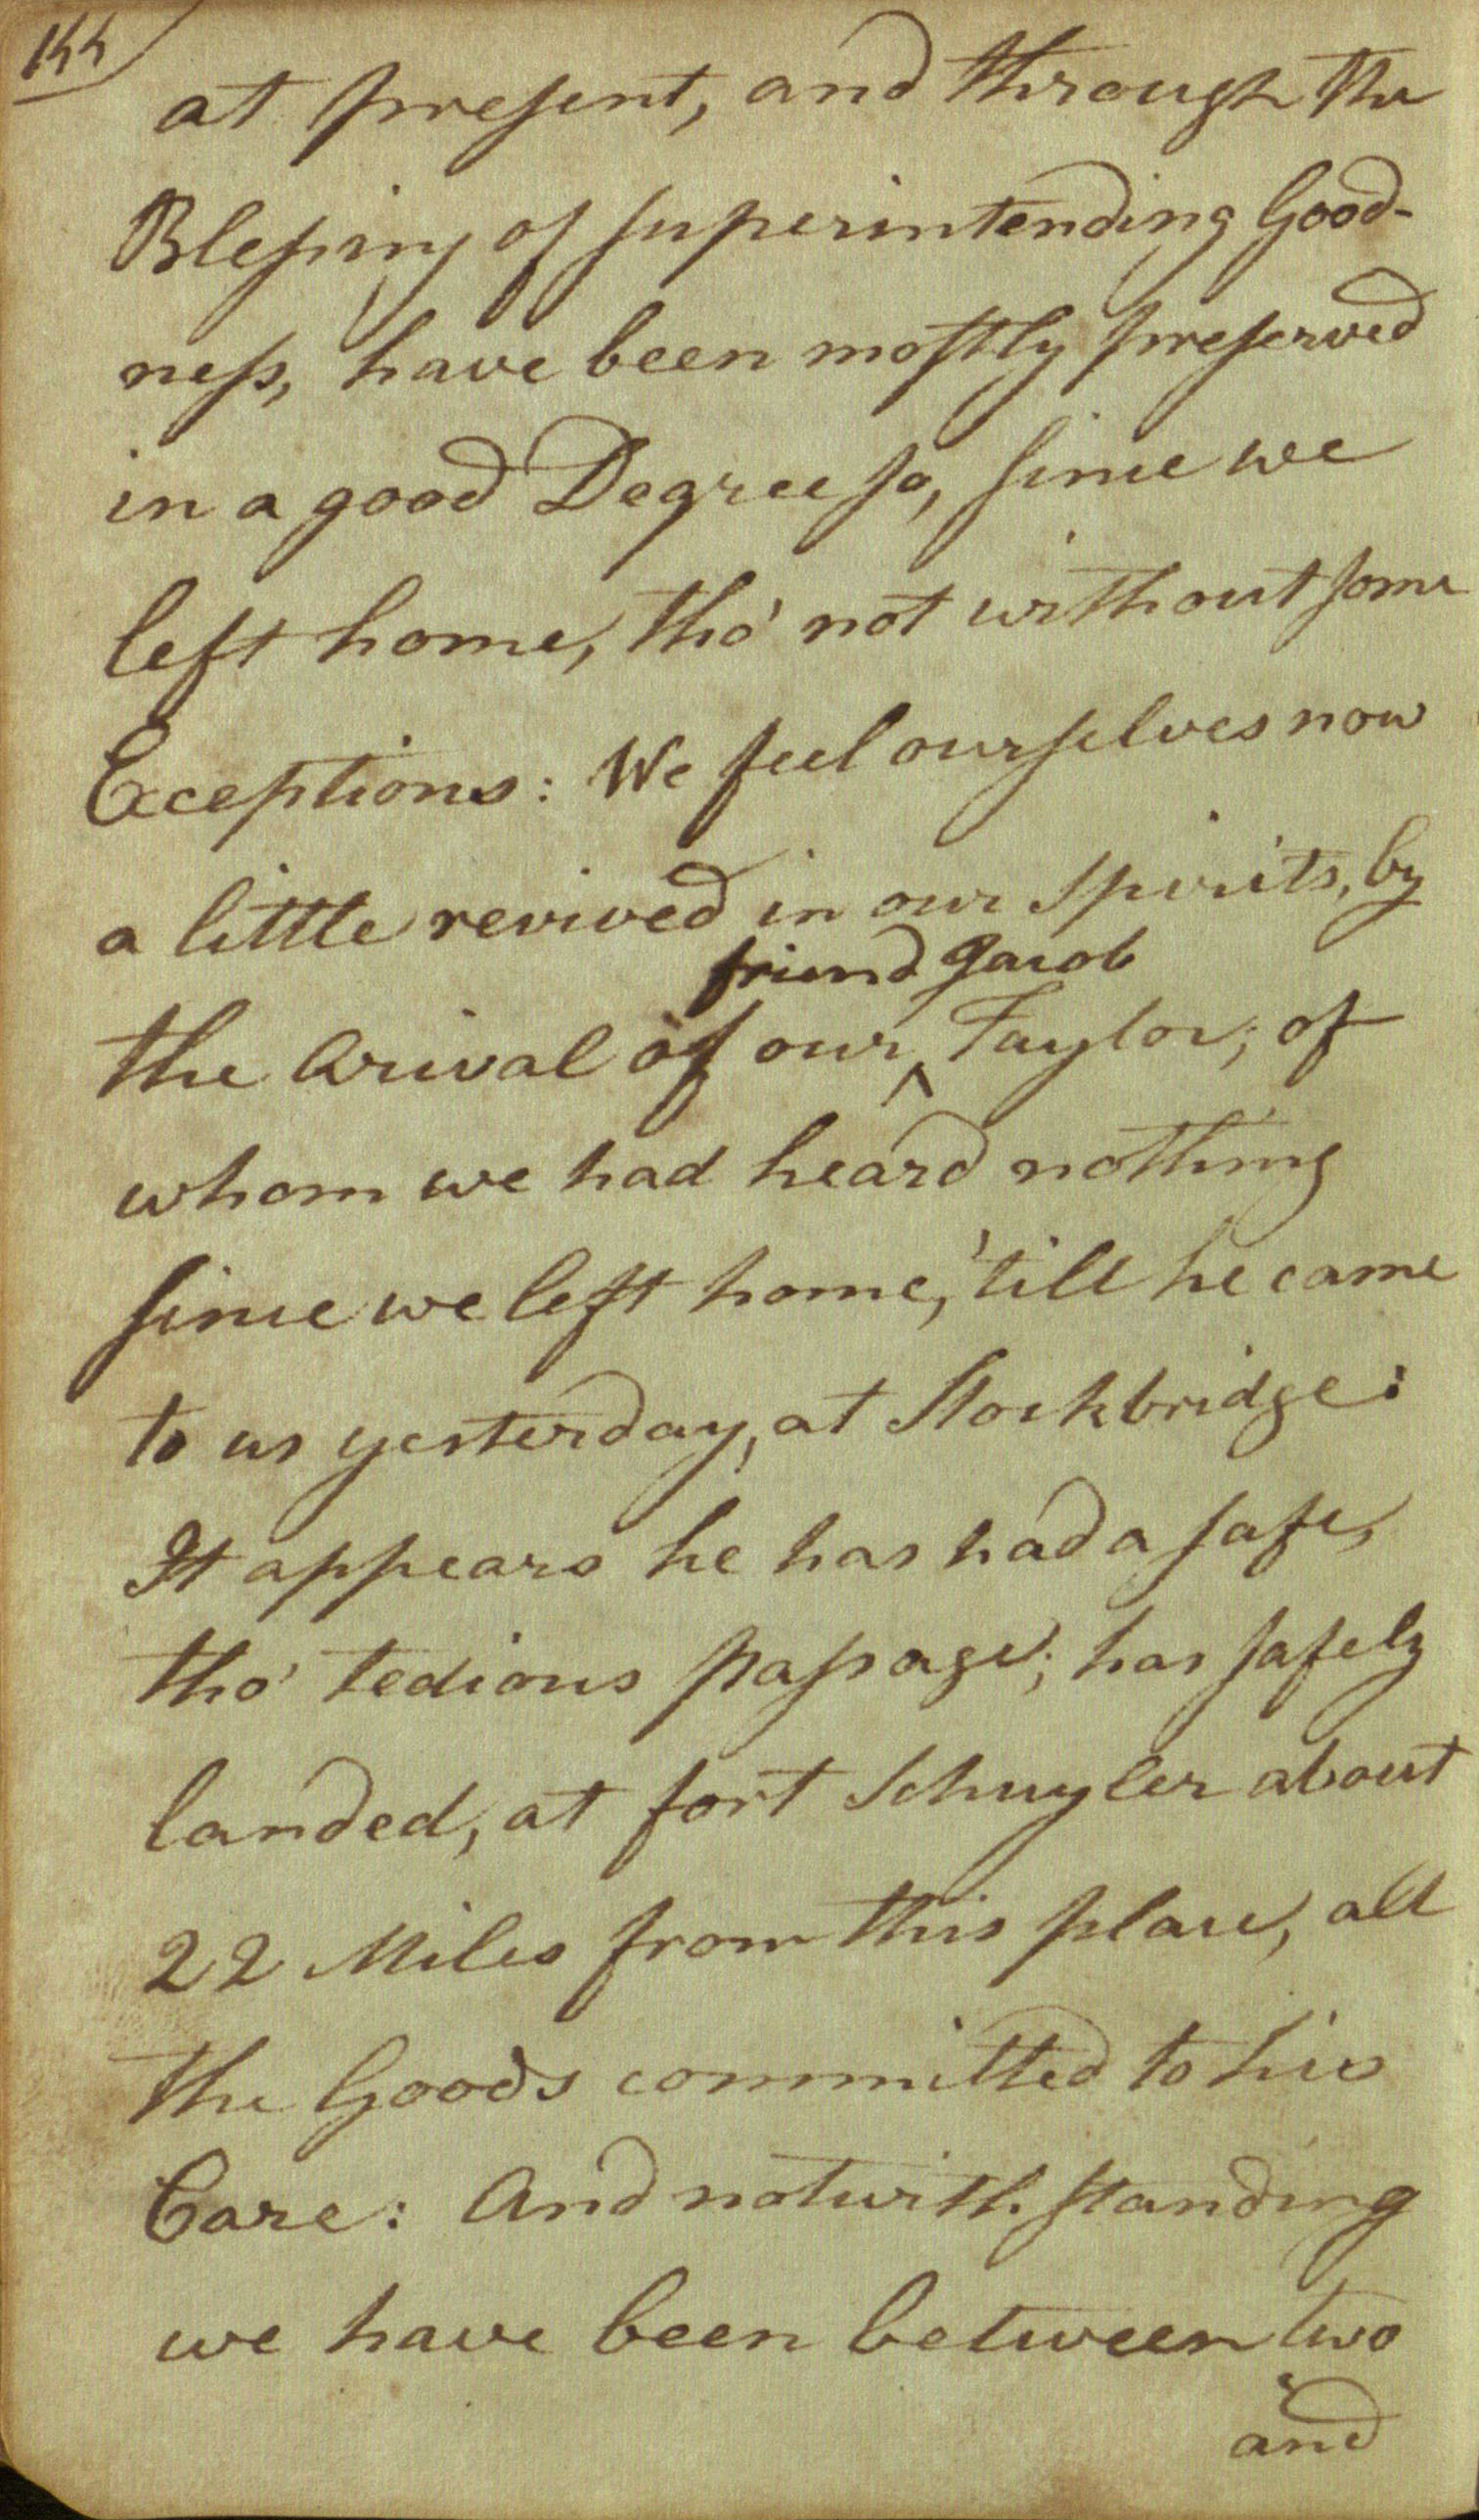 144
at present, and through the
Blessing of superintending Good-
ness, have been mostly preserved
in a good Degree so, since we
left home, tho' not without some
Exceptions: We feel ourselves now
a little revived in our spirits, by
friend Jacob
the Arival of our ^ Taylor; of
whom we had heard nothing
since we left home, 'till he came
to us yesterday, at Stockbridge:
It appears he has had a safe,
tho' tedious passage; has safely
landed, at fort Schuyler about
22 Miles from this place, all
the Goods committed to his
Care: And notwithstanding
we have been between two
and